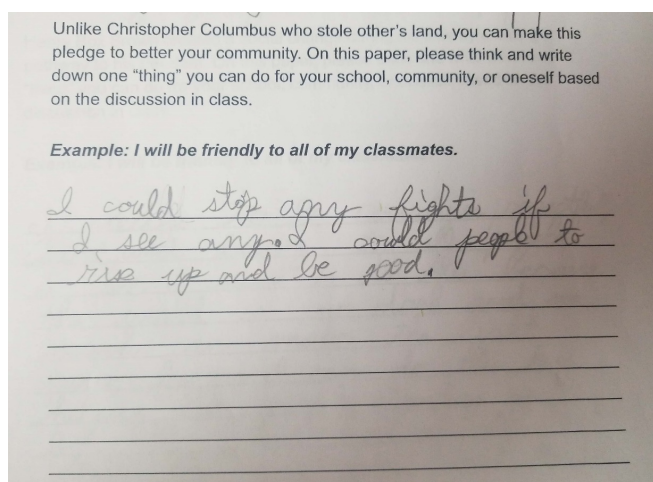 Unlike Christopher Columbus who stole other's land, you can make this
pledge to better your community. On this paper, please think and write
down one “thing” you can do for your school, community, or oneself based
on the discussion in class.
Example: I will be friendly to all of my classmates.
I could stop any fights if
I see any. I could people to
rise up and be good.